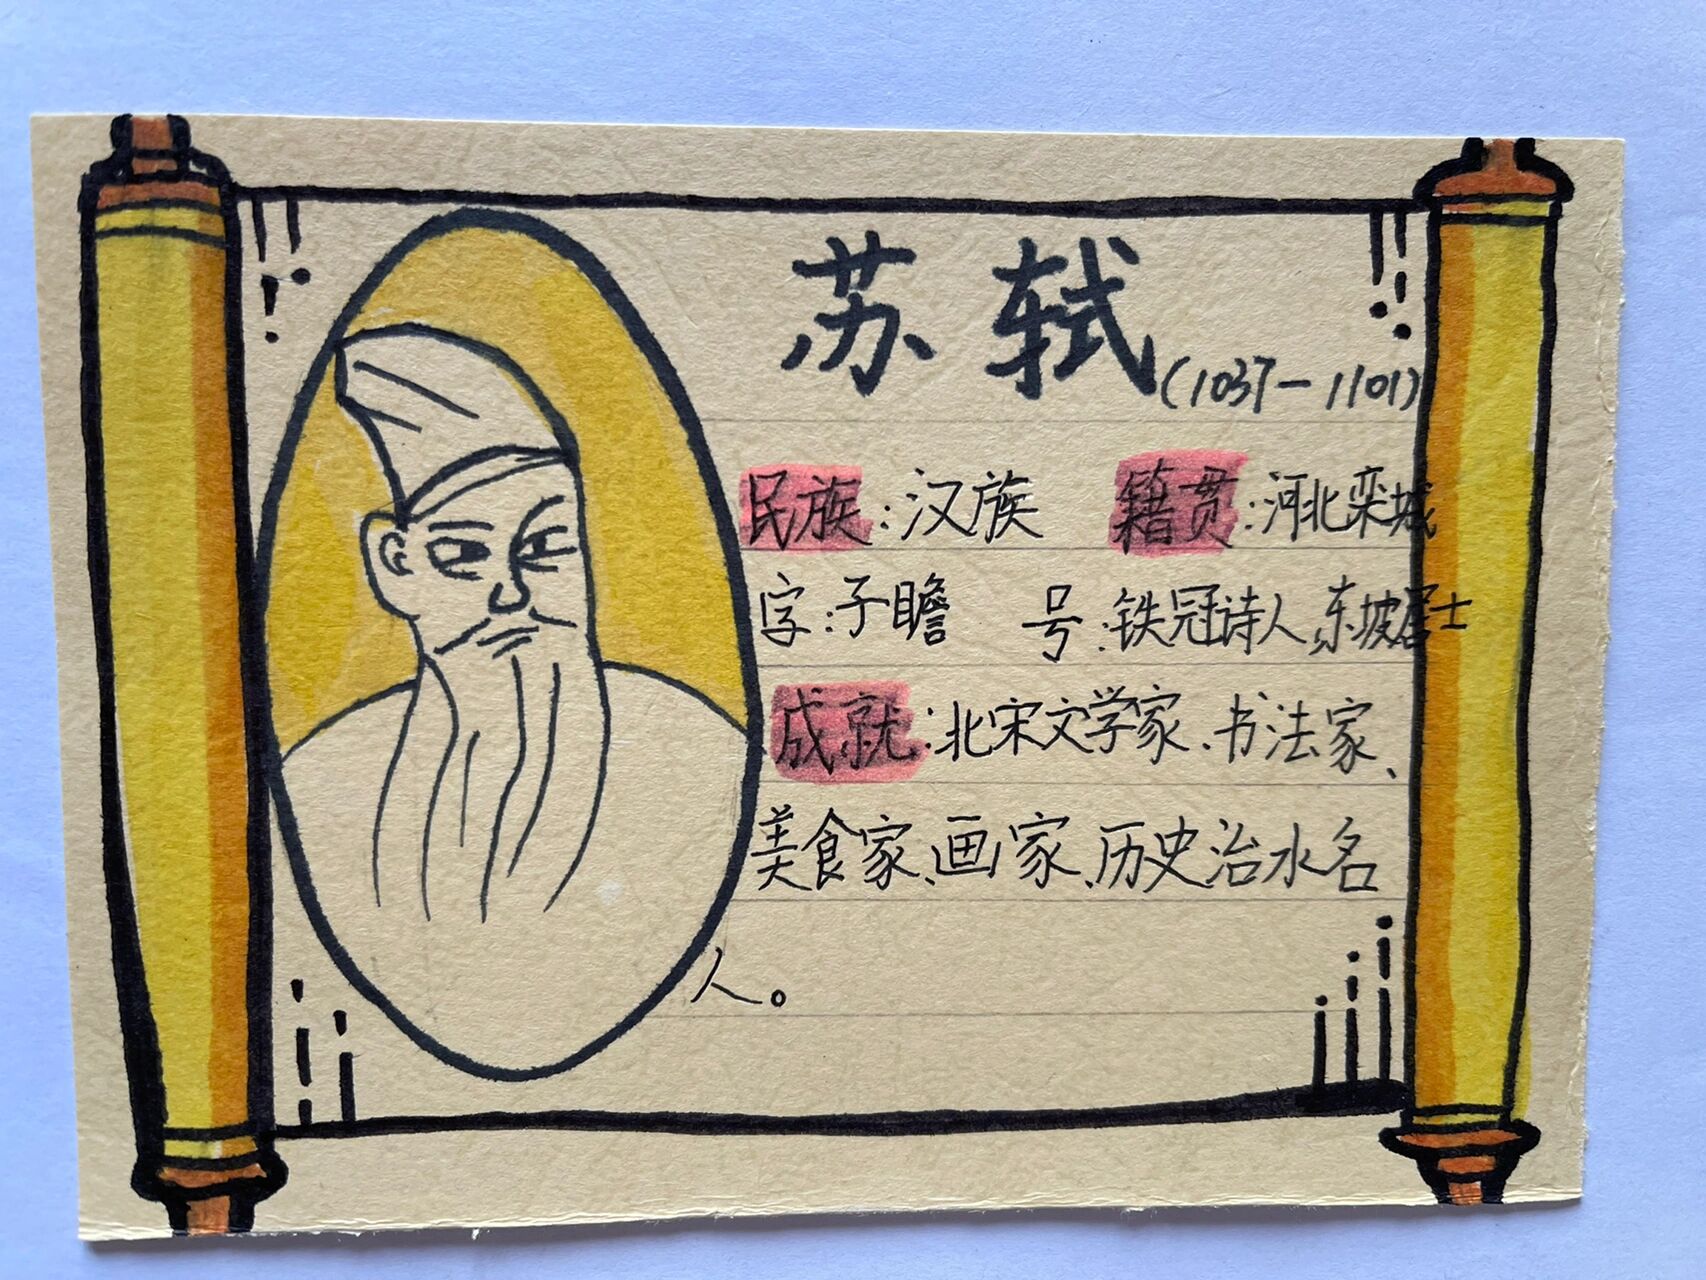 苏轼
(1037-1101)
民族:汉族 籍贯:河北栾城
字:子瞻 号:铁冠诗人、东坡居士
成就:北宋文学家、书法家、
美食家、画家、历史治水名
人。